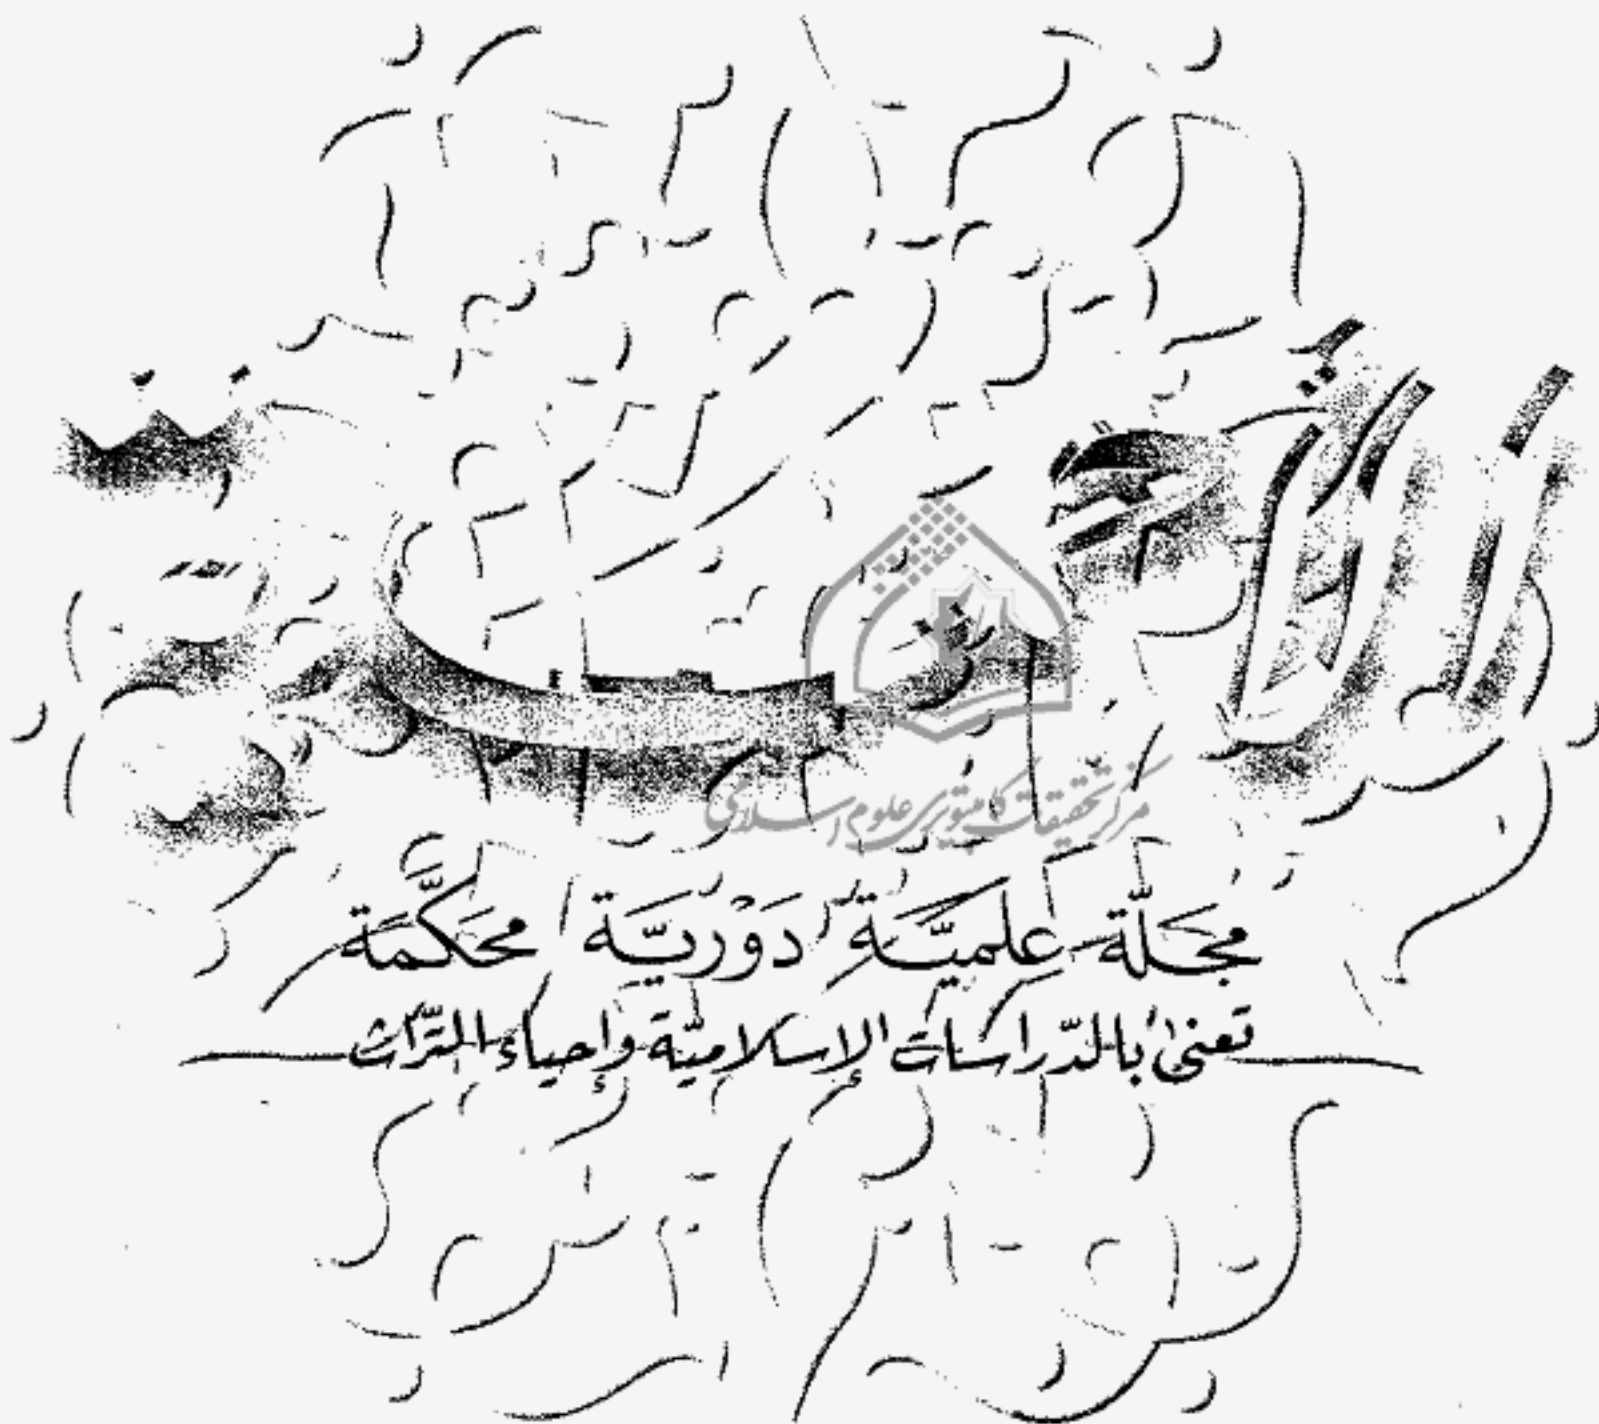 مركز تحقيقات كامپيوتری علوم اسلامی
مَجَلَّة عِلميَّة دَوْريَّة محَكَّمَة
تعنىٰ بالدّراسات الإسلاميّة وإحياء التّراث